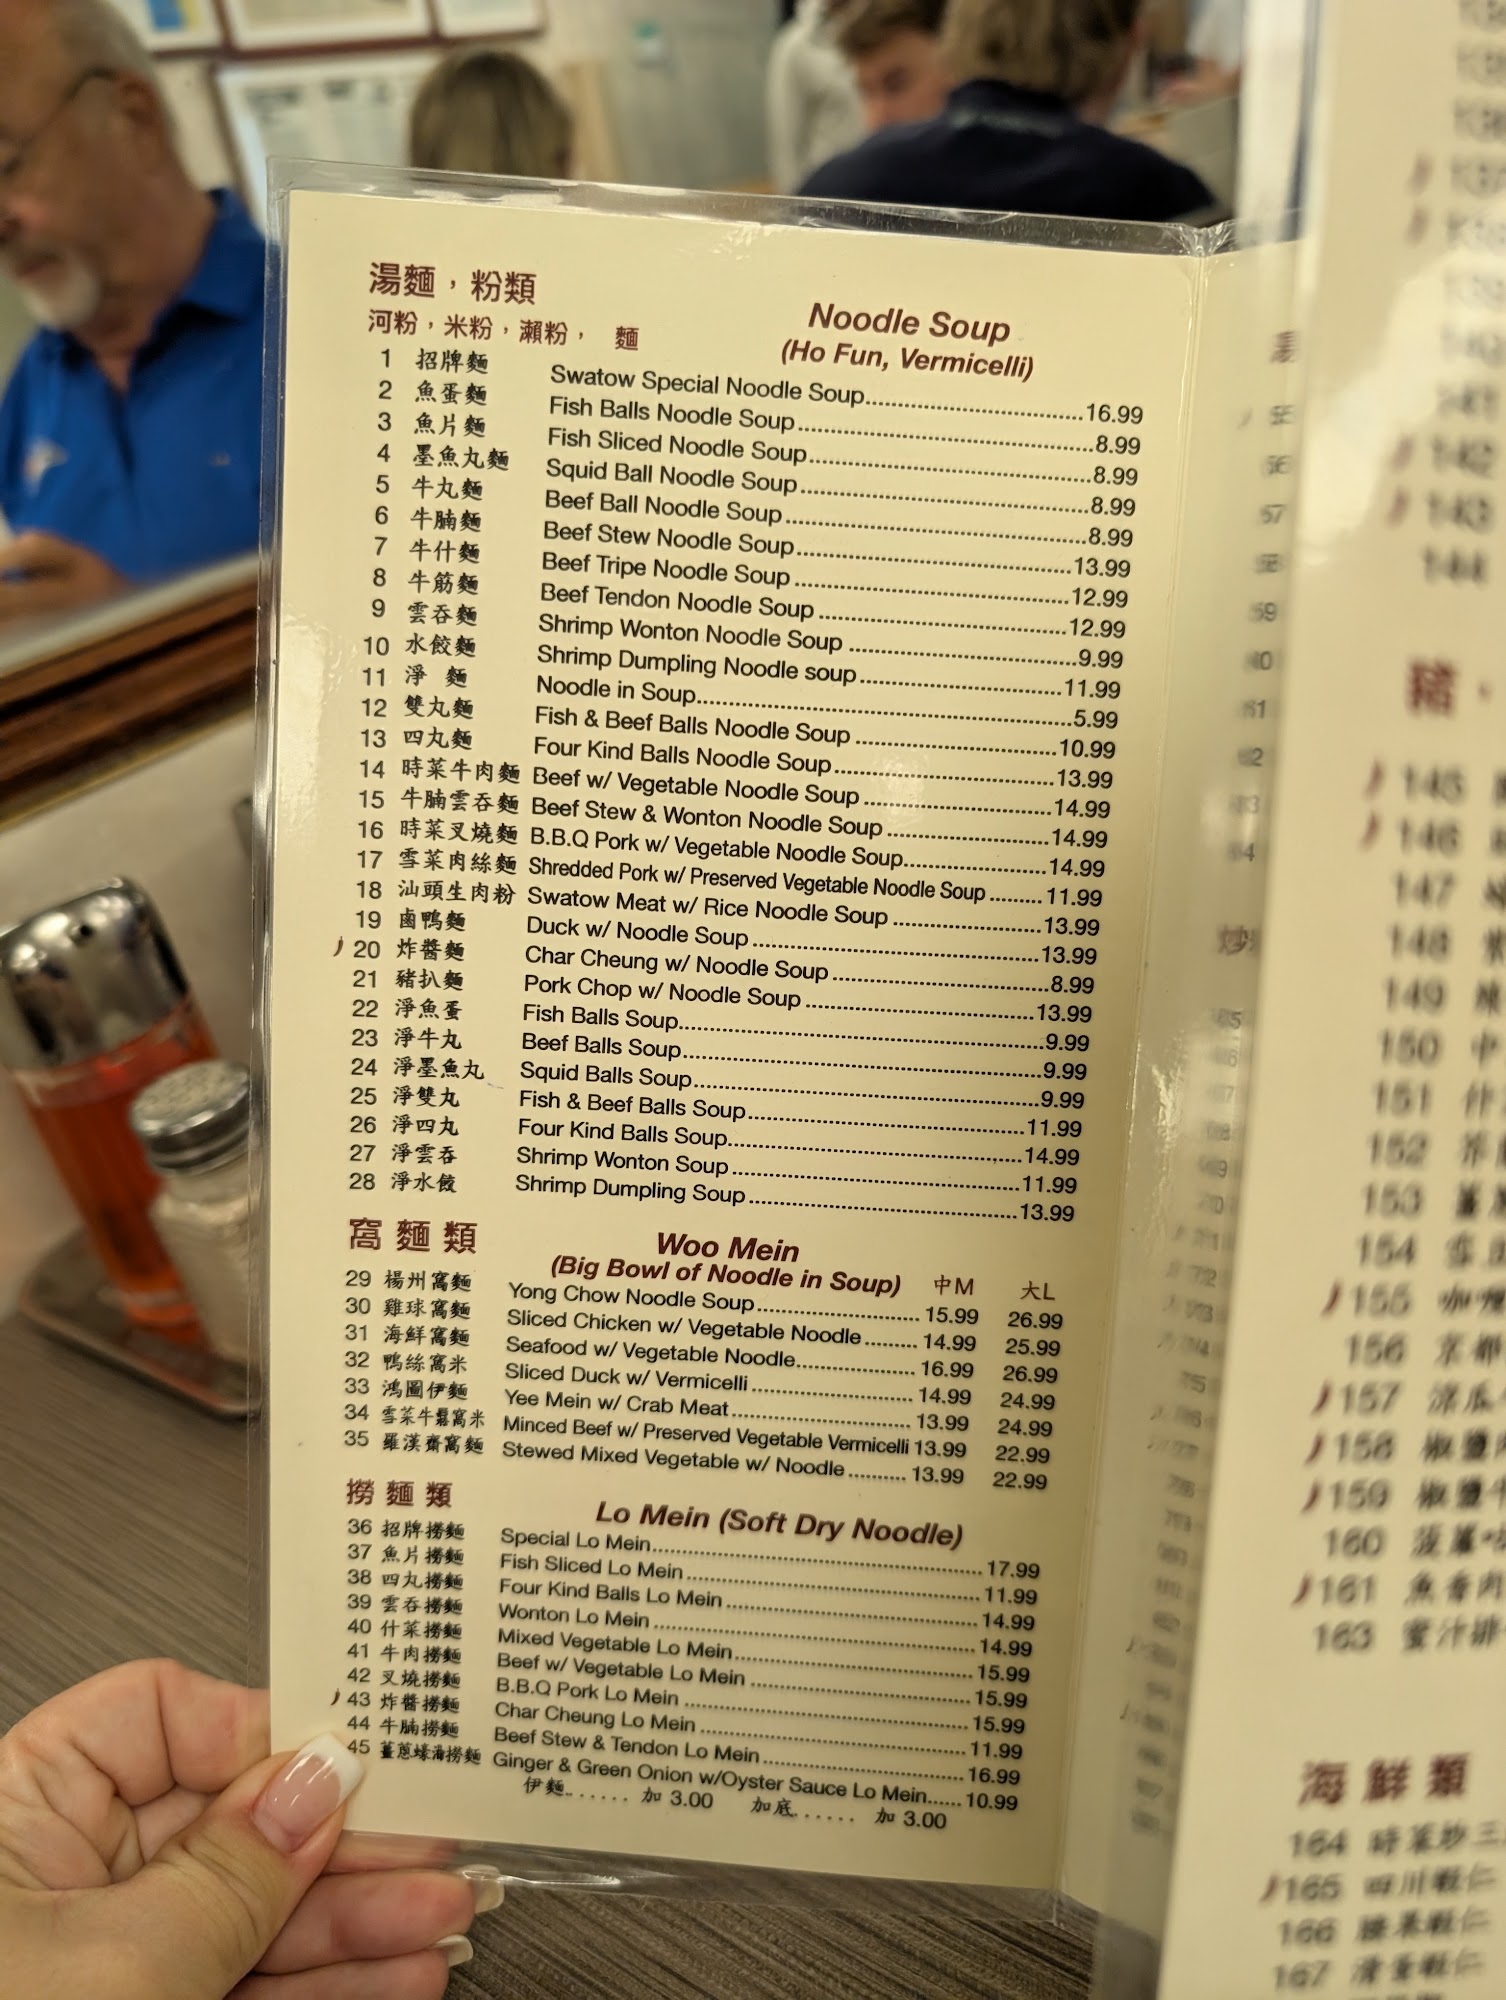 湯麵，粉類
河粉，米粉，瀨粉， 麵
Noodle Soup
(Ho Fun, Vermicelli)
1 招牌麵 Swatow Special Noodle Soup 16.99
2 魚蛋麵 Fish Balls Noodle Soup 8.99
3 魚片麵 Fish Sliced Noodle Soup 8.99
4 墨魚丸麵 Squid Ball Noodle Soup 8.99
5 牛丸麵 Beef Ball Noodle Soup 8.99
6 牛腩麵 Beef Stew Noodle Soup 13.99
7 牛什麵 Beef Tripe Noodle Soup 12.99
8 牛筋麵 Beef Tendon Noodle Soup 12.99
9 雲吞麵 Shrimp Wonton Noodle Soup 9.99
10 水餃麵 Shrimp Dumpling Noodle soup 11.99
11 淨 麵 Noodle in Soup 5.99
12 雙丸麵 Fish & Beef Balls Noodle Soup 10.99
13 四丸麵 Four Kind Balls Noodle Soup 13.99
14 時菜牛肉麵 Beef w/ Vegetable Noodle Soup 14.99
15 牛腩雲吞麵 Beef Stew & Wonton Noodle Soup 14.99
16 時菜叉燒麵 B.B.Q Pork w/ Vegetable Noodle Soup 14.99
17 雪菜肉絲麵 Shredded Pork w/ Preserved Vegetable Noodle Soup 11.99
18 汕頭生肉粉 Swatow Meat w/ Rice Noodle Soup 13.99
19 鹵鴨麵 Duck w/ Noodle Soup 13.99
20 炸醬麵 Char Cheung w/ Noodle Soup 8.99
21 豬扒麵 Pork Chop w/ Noodle Soup 13.99
22 淨魚蛋 Fish Balls Soup 9.99
23 淨牛丸 Beef Balls Soup 9.99
24 淨墨魚丸 Squid Balls Soup 9.99
25 淨雙丸 Fish & Beef Balls Soup 11.99
26 淨四丸 Four Kind Balls Soup 14.99
27 淨雲吞 Shrimp Wonton Soup 11.99
28 淨水餃 Shrimp Dumpling Soup 13.99
窩麵類 Woo Mein
(Big Bowl of Noodle in Soup) 中M 大L
29 楊州窩麵 Yong Chow Noodle Soup 15.99 26.99
30 雞球窩麵 Sliced Chicken w/ Vegetable Noodle 14.99 25.99
31 海鮮窩麵 Seafood w/ Vegetable Noodle 16.99 26.99
32 鴨絲窩米 Sliced Duck w/ Vermicelli 14.99 24.99
33 鴻圖伊麵 Yee Mein w/ Crab Meat 13.99 24.99
34 雪菜牛鬆窩米 Minced Beef w/ Preserved Vegetable Vermicelli 13.99 22.99
35 羅漢齋窩麵 Stewed Mixed Vegetable w/ Noodle 13.99 22.99
撈麵類 Lo Mein (Soft Dry Noodle)
36 招牌撈麵 Special Lo Mein 17.99
37 魚片撈麵 Fish Sliced Lo Mein 11.99
38 四丸撈麵 Four Kind Balls Lo Mein 14.99
39 雲吞撈麵 Wonton Lo Mein 14.99
40 什菜撈麵 Mixed Vegetable Lo Mein 15.99
41 牛肉撈麵 Beef w/ Vegetable Lo Mein 15.99
42 叉燒撈麵 B.B.Q Pork Lo Mein 15.99
43 炸醬撈麵 Char Cheung Lo Mein 11.99
44 牛腩撈麵 Beef Stew & Tendon Lo Mein 16.99
45 薑蔥蠔油撈麵 Ginger & Green Onion w/Oyster Sauce Lo Mein 10.99
伊麵...... 加 3.00 加底...... 加 3.00
142
143
144
145
146
147
148
149
150 中
151 什
152
153
154
155 咖
156 京都
157 涼瓜
158 椒鹽
159 椒鹽
160 菠蘿
161 魚香肉
163 蜜汁排
海鮮類
164 時菜炒三
165 四川蝦仁
166 腰果蝦仁
167 滑蛋蝦仁